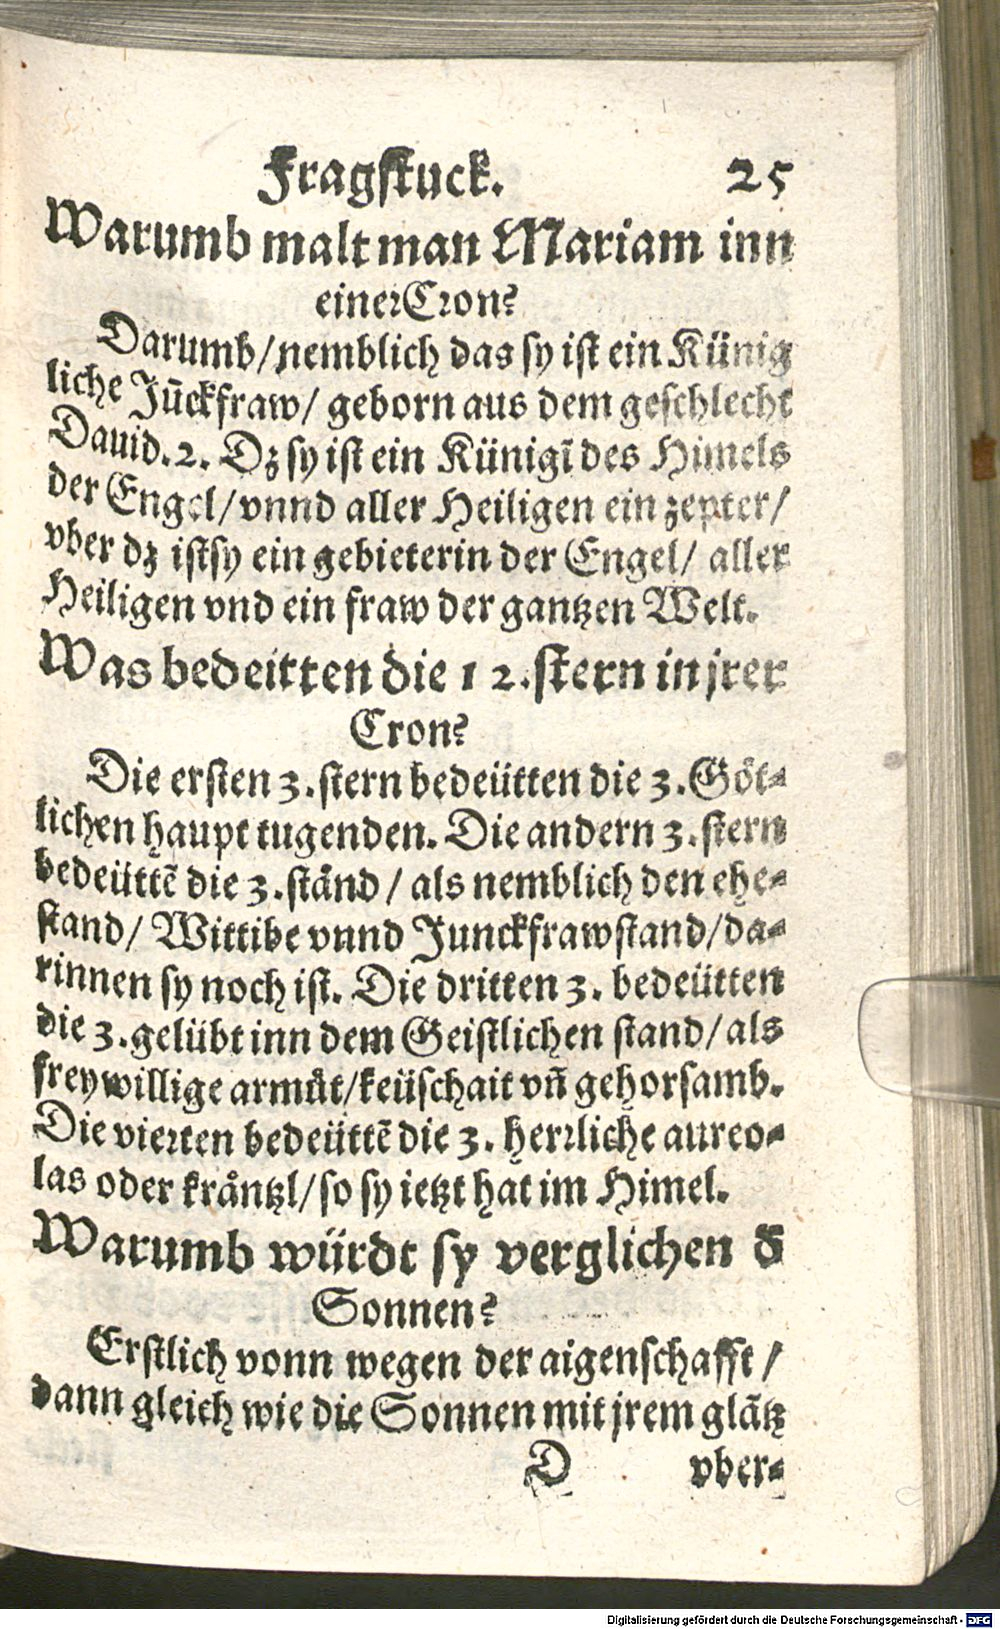 Fragstuck. 25
Warumb malt man Mariam inn
einer Cron?
Darumb/ nemblich das sy ist ein Künig
liche Jūckfraw/ geborn aus dem geschlecht
Dauid. 2. Dz sy ist ein Künigī des Himels
der Engel/ vnnd aller Heiligen ein zepter/
vber dz ist sy ein gebieterin der Engel/ aller
Heiligen vnd ein fraw der gantzen Welt.
Was bedeitten die 12. stern in jrer
Cron?
Die ersten 3. stern bedeütten die 3. Göt-
lichen haupt tugenden. Die andern 3. stern
bedeüttē die 3. ständ/ als nemblich den ehe-
stand/ Wittibe vnnd Junckfrawstand/ da-
rinnen sy noch ist. Die dritten 3. bedeütten
die 3. gelübt inn dem Geistlichen stand/ als
freywillige armůt/ keüschait vn̄ gehorsamb.
Die vierten bedeüttē die 3. herrliche aureo-
las oder kräntzl/ so sy ietzt hat im Himel.
Warumb würdt sy verglichen d̄
Sonnen?
Erstlich vonn wegen der aigenschafft/
dann gleich wie die Sonnen mit jrem glātz
D vber-
Digitalisierung gefördert durch die Deutsche Forschungsgemeinschaft - DFG